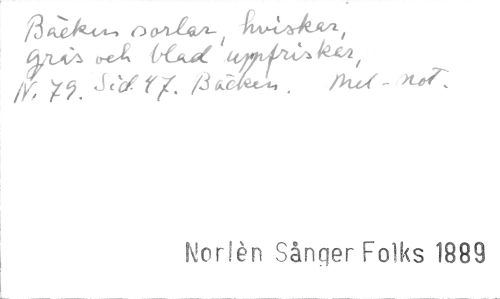 Bäcken sorlar, hviskar,
gräs och blad uppfriskar,
N. 79. Sid. 47. Bäcken. Mel-not.
Norlèn Sånger Folks 1889